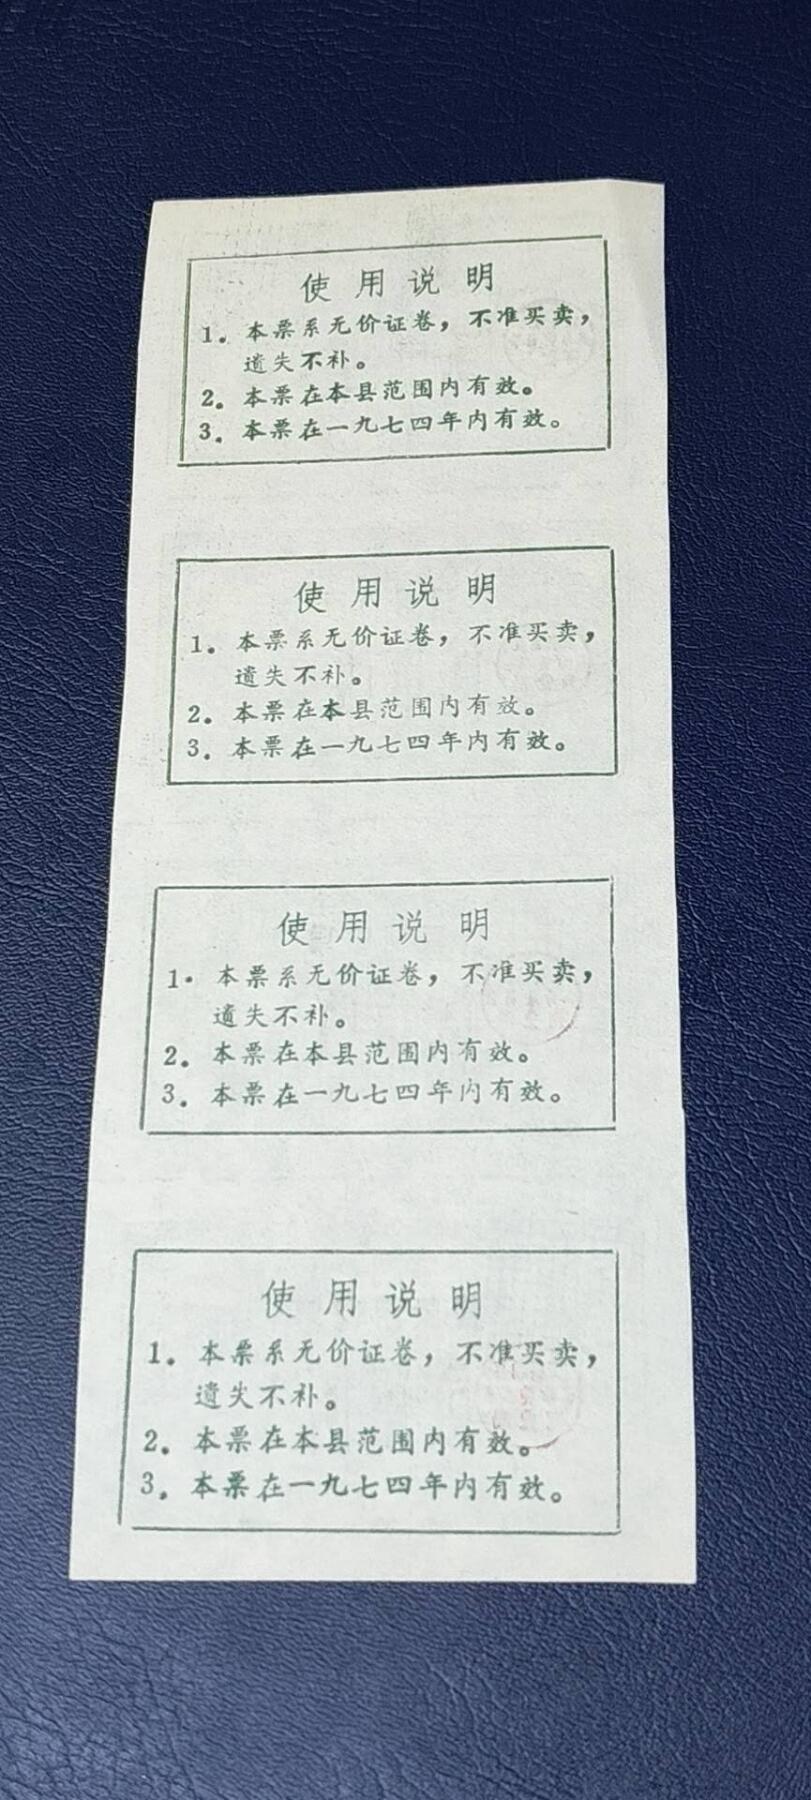 使用说明
1. 本票系无价证卷，不准买卖，
遗失不补。
2. 本票在本县范围内有效。
3. 本票在一九七四年内有效。
使用说明
1. 本票系无价证卷，不准买卖，
遗失不补。
2. 本票在本县范围内有效。
3. 本票在一九七四年内有效。
使用说明
1. 本票系无价证卷，不准买卖，
遗失不补。
2. 本票在本县范围内有效。
3. 本票在一九七四年内有效。
使用说明
1. 本票系无价证卷，不准买卖，
遗失不补。
2. 本票在本县范围内有效。
3. 本票在一九七四年内有效。